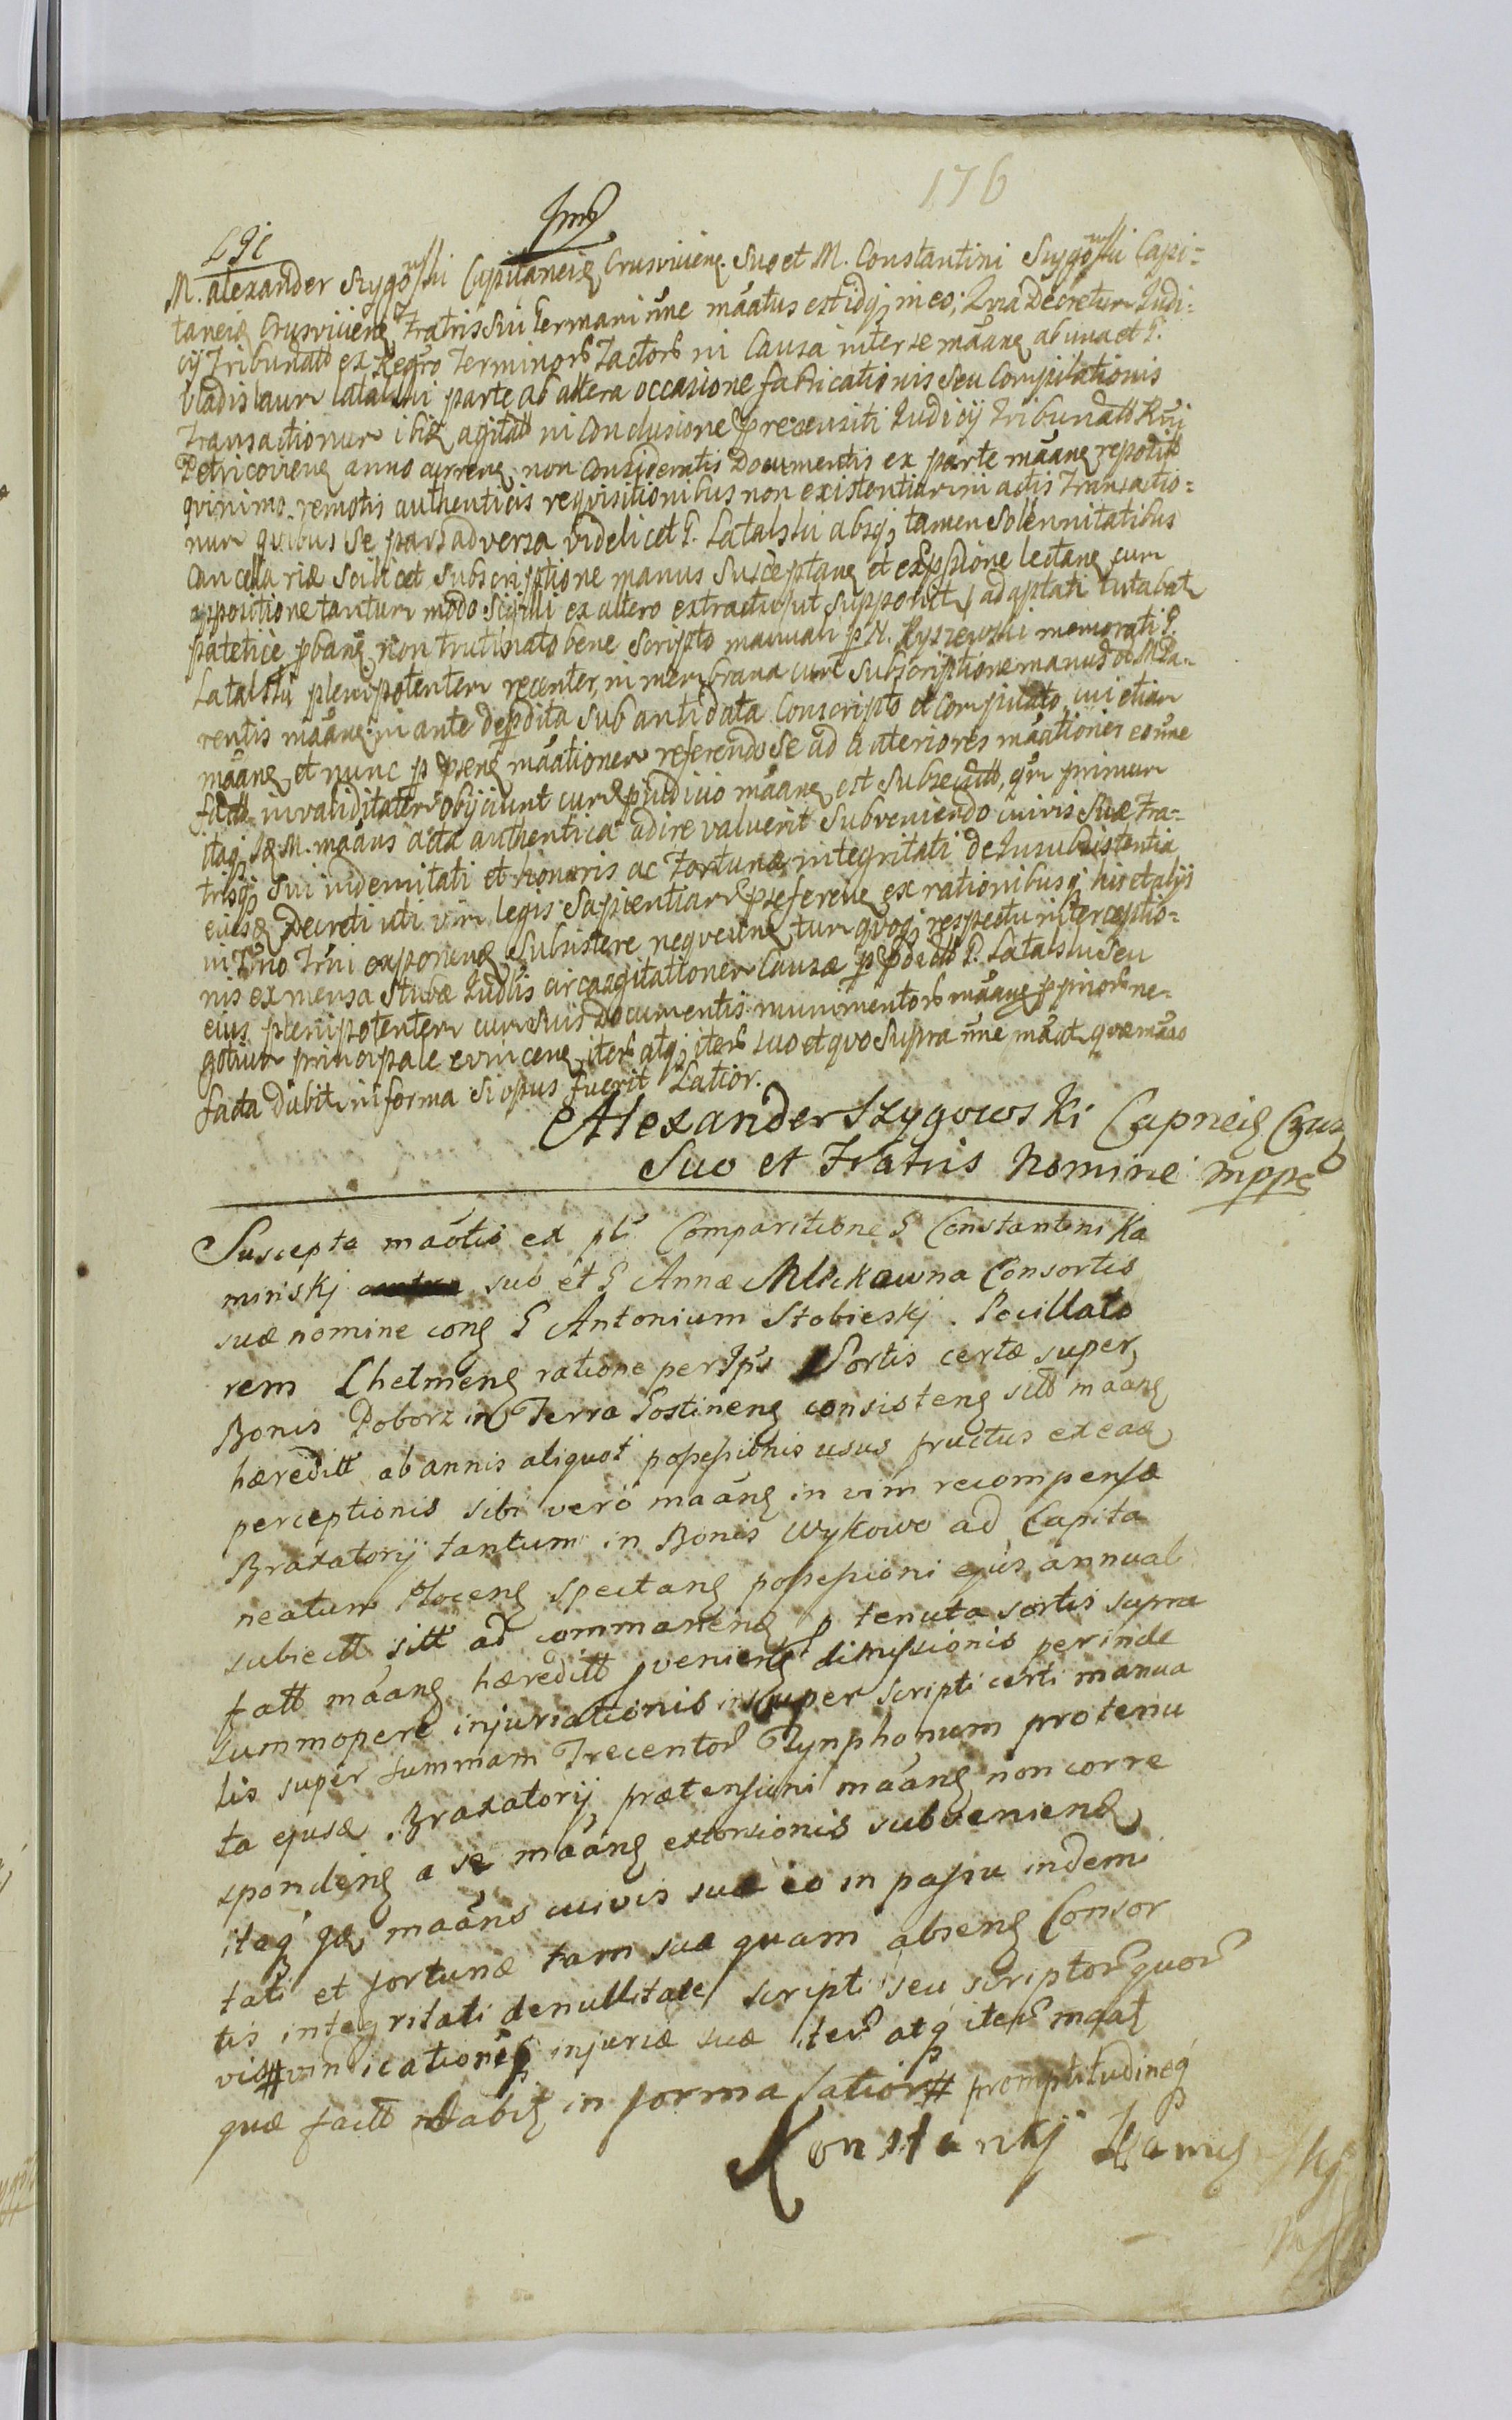 176
M. Alexander Szygowski Capitaneig Crusviceng. Suo et M. Constantini Szygowski Capi=
taneig Crusviceng Fratris Sui Germani nne maatus est idq in eo; Quia Decretum Judi=
cij Tribunatt ex Regro Terminorb Factorb in Causa inter se maang ab una et G.
Vladislaum Latalski parte ab altera occasione fabricationis Seu Compilationis
Transactionum ibiz agitatt in Conclusione praecensiti Judicij Tribunatt Rni
Petricoviens anno curreng non Consideratis Documentis ex parte maang repositt
qvinimo remotis authenticis reqvisitionibus non existentiarum in actis Transactio=
num qvibus Se pars adversa videlicet G. Latalski absq, tamen Solennitatibus
Cancellariæ Scilicet Subscriptione manus Susceptang et expssione lectang cum
appositione tantum modo Sigilli ex altero extracti ut Supponit adaptati tutabat
patetice pbang non trutinato bene Scripto manuali p N. Kyszewski memorati G.
Latalski plenipotentem recenter, in membrana cum Subscriptione manus ol M Pa=
rentis maang in ante depdita Sub antidata Conscripto et Compilato, cui etiam
maang et nunc p pseng maationem referendo Se ad anteriores maationes eo nne
factt invaliditatem obijciunt cum pjudicio maang est Subsecutt, qm primum
itaq, Idem M. maans acta authentica adire valuerit Subveniendo iuris Suæ Fra=
trisq, Sui indemnitati et honoris ac Fortunæ integritati de Insubsistentia
eiusd Decreti uti vim legis Sapientiam pseferene ex rationibusq, his et alijs
in Tmo Trni exponend Subsistere neqveunt, tum qvoq, respectu interceptio=
nis ex mensa Stubæ Judlis circa agitationem Causæ p pdictt G. Latalski Seu
eius plenipotentem cum Suis Documentis munimentorb maang ppriorb ne=
gotium principale evinceng iterb atq, iterb suo et quo Supra nne maat. qvæ maao
facta dubit in forma Si opus fuerit Latior.
Alexander Szygowski Capneig Crus
Suo et Fratris Nomine mppa
Suscepta maotio ex pt Comparitione G Constantini Ka
minskj suo et G Annæ Mlickowna Consortis
suæ nomine cong G Antonium Stobieskj. Pocillato
rem Chelmeng ratione per Ips Sortis certæ super
Bonis Poborz in Terra Gostineng consisteng sitt maang
hæreditt ab annis aliquot possessionis usus fructus ex ead
perceptionis sibi vero maang in vim recompensæ
Braxatorij tantum in Bonis Wykowo ad Capita
neatum Ploceng spectang possessioni ejus annual
subiectt sitt ad commanend p tenuta sortis supra
fatt maang hæreditt pvenient dimissionis perinde
summopere injuriationis insuper scripti certi manua
lis super summam Trecentor Tynphonum pro tenu
ta ejusd. Braxatorij prætensioni maang non corre
spondeng a se maang extorsionis subveniend
itaq Id maans iuris suæ eo in passu indemi
tati et fortunæ tam suæ quam abseng Consor
tis integritati denullitate scripti seu scriptor quor
vis # vindicationeq injuriæ suæ iter atq iter maat
quæ factt dabit in forma latior # promptitudineq
Konstantij Kamieskij